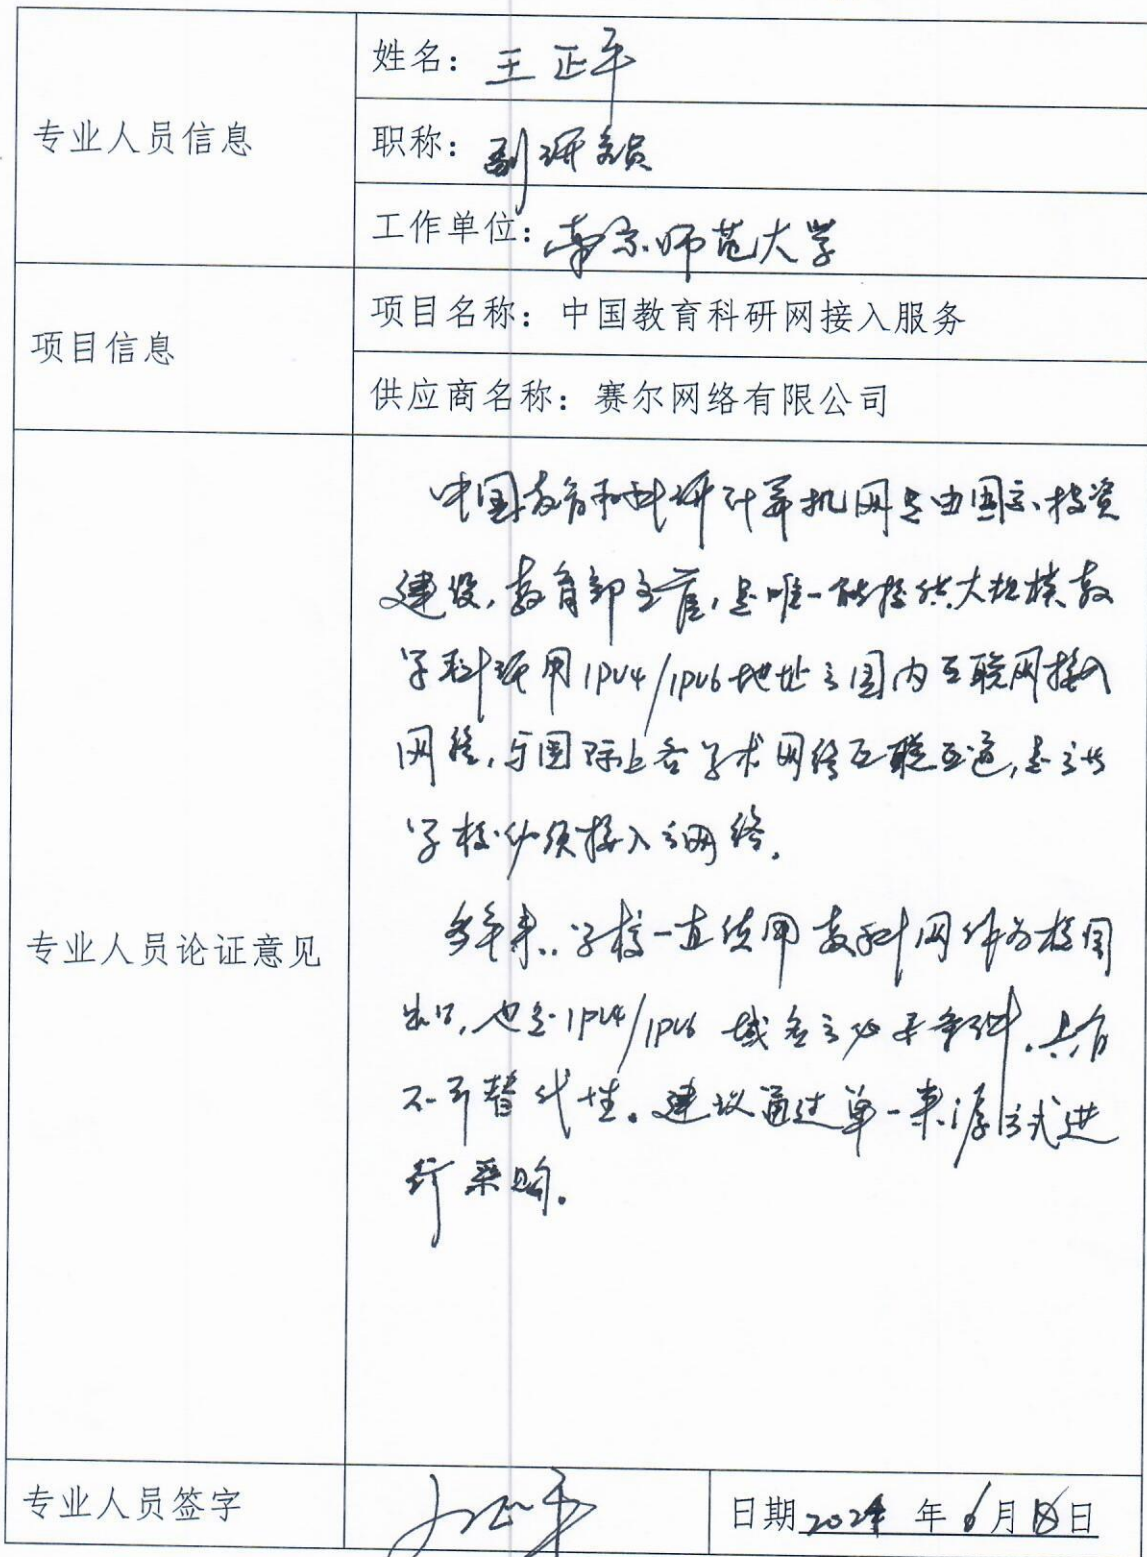 专业人员信息
姓名：王正平
职称：副研究员
工作单位：南京师范大学
项目信息
项目名称：中国教育科研网接入服务
供应商名称：赛尔网络有限公司
专业人员论证意见
中国教育和科研计算机网是由国家投资
建设，教育部主管，是唯一能提供大规模教
学科研用IPV4/IPV6地址之国内互联网接入
网络，与国际上各学术网络互联互通，是
学校必须接入之网络。
多年来，学校一直使用教科网作为校园
出口，也是IPV4/IPV6域名之必要条件，具有
不可替代性。建议通过单一来源方式进
行采购。
专业人员签字
王正平
日期2024年6月18日